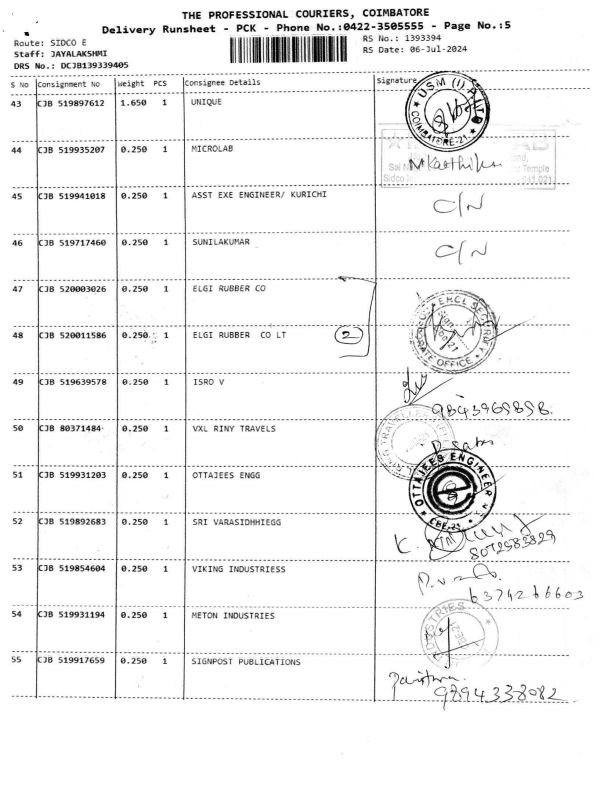 THE PROFESSIONAL COURIERS, COIMBATORE
Delivery Runsheet - PCK - Phone No.:0422-3505555 - Page No.:5
Route: SIDCO E
Staff: JAYALAKSHMI
DRS No.: DCJB139339405
RS No.: 1393394
RS Date: 06-Jul-2024
S No Consignment No Weight PCS Consignee Details Signature
43 CJB 519897612 1.650 1 UNIQUE
USM (I) AUTO
COIMBATORE-21
44 CJB 519935207 0.250 1 MICROLAB
Temple
Sidco
641 021
45 CJB 519941018 0.250 1 ASST EXE ENGINEER/ KURICHI C/N
46 CJB 519717460 0.250 1 SUNILAKUMAR C/N
47 CJB 520003026 0.250 1 ELGI RUBBER CO
48 CJB 520011586 0.250 1 ELGI RUBBER CO LT 2
SECURITY
OFFICE
49 CJB 519639578 0.250 1 ISRO V
9843965858
50 CJB 80371484 0.250 1 VXL RINY TRAVELS
51 CJB 519931203 0.250 1 OTTAJEES ENGG
OTTAJEES ENGINEER
CBE-21
52 CJB 519892683 0.250 1 SRI VARASIDHHIEGG
53 CJB 519854604 0.250 1 VIKING INDUSTRIESS
6374266603
54 CJB 519931194 0.250 1 METON INDUSTRIES
55 CJB 519917659 0.250 1 SIGNPOST PUBLICATIONS
9894338082